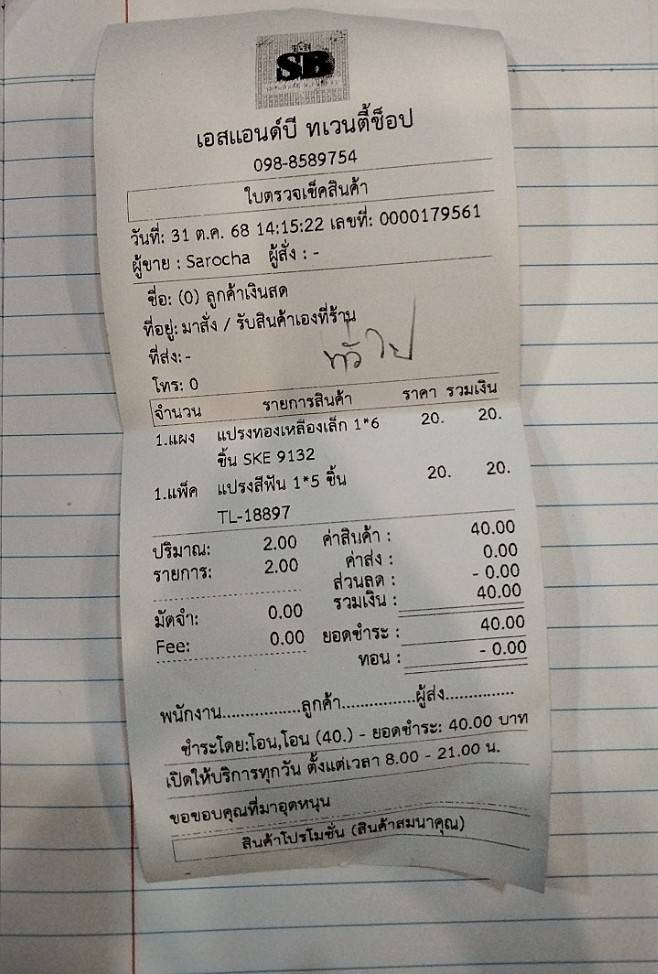 SB
เอสแอนด์บี ทเวนตี้ช็อป
098-8589754
ใบตรวจเช็คสินค้า
วันที่: 31 ต.ค. 68 14:15:22 เลขที่: 0000179561
ผู้ขาย : Sarocha ผู้สั่ง : -
ชื่อ: (0) ลูกค้าเงินสด
ที่อยู่: มาสั่ง / รับสินค้าเองที่ร้าน
ที่ส่ง:-
ทั่วไป
โทร: 0
จำนวน รายการสินค้า ราคา รวมเงิน
1.แผง แปรงทองเหลืองเล็ก 1*6 20. 20.
ชิ้น SKE 9132
1.แพ็ค แปรงสีฟัน 1*5 ชิ้น 20. 20.
TL-18897
ปริมาณ: 2.00 ค่าสินค้า : 40.00
รายการ: 2.00 ค่าส่ง : 0.00
ส่วนลด : - 0.00
มัดจำ: 0.00 รวมเงิน : 40.00
Fee: 0.00 ยอดชำระ : 40.00
ทอน : - 0.00
พนักงาน.................ลูกค้า................ผู้ส่ง...............
ชำระโดย:โอน,โอน (40.) - ยอดชำระ: 40.00 บาท
เปิดให้บริการทุกวัน ตั้งแต่เวลา 8.00 - 21.00 น.
ขอขอบคุณที่มาอุดหนุน
สินค้าโปรโมชั่น (สินค้าสมนาคุณ)